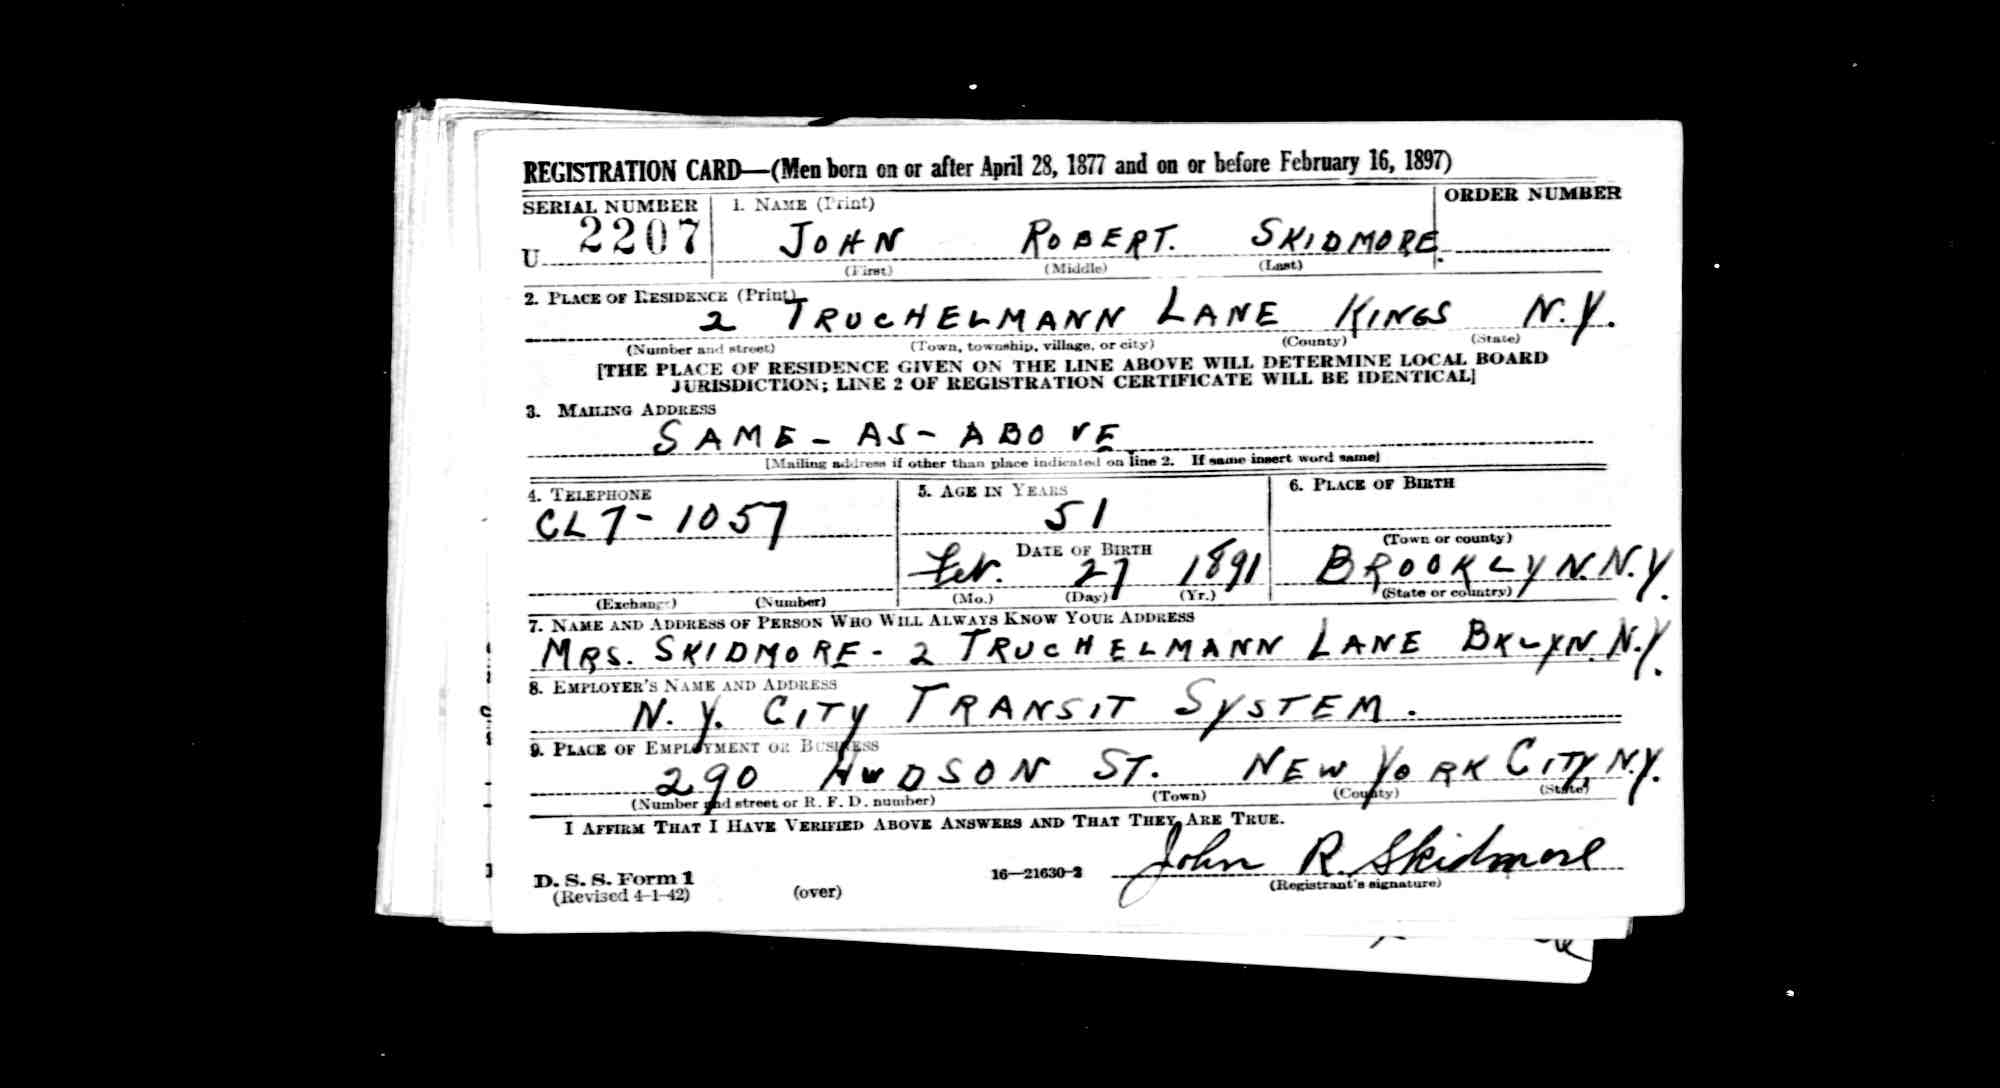 REGISTRATION CARD—(Men born on or after April 28, 1877 and on or before February 16, 1897)
SERIAL NUMBER
1. NAME (Print)
ORDER NUMBER
U 2207
JOHN ROBERT. SKIDMORE.
(First) (Middle) (Last)
2. PLACE OF RESIDENCE (Print)
2 TRUCHELMANN LANE KINGS N.Y.
(Number and street) (Town, township, village, or city) (County) (State)
[THE PLACE OF RESIDENCE GIVEN ON THE LINE ABOVE WILL DETERMINE LOCAL BOARD
JURISDICTION; LINE 2 OF REGISTRATION CERTIFICATE WILL BE IDENTICAL]
3. MAILING ADDRESS
SAME - AS - ABOVE
[Mailing address if other than place indicated on line 2. If same insert word same]
4. TELEPHONE
CL 7 - 1057
(Exchange) (Number)
5. AGE IN YEARS
51
DATE OF BIRTH
Feb. 27 1891
(Mo.) (Day) (Yr.)
6. PLACE OF BIRTH
(Town or county)
BROOKLYN. N.Y.
(State or country)
7. NAME AND ADDRESS OF PERSON WHO WILL ALWAYS KNOW YOUR ADDRESS
MRS. SKIDMORE - 2 TRUCHELMANN LANE BKLYN. N.Y.
8. EMPLOYER'S NAME AND ADDRESS
N.Y. CITY TRANSIT SYSTEM.
9. PLACE OF EMPLOYMENT OR BUSINESS
290 HUDSON ST. NEW YORK CITY, N.Y.
(Number and street or R. F. D. number) (Town) (County) (State)
I AFFIRM THAT I HAVE VERIFIED ABOVE ANSWERS AND THAT THEY ARE TRUE.
John R. Skidmore
D. S. S. Form 1
(Revised 4-1-42)
(over)
16—21630-2
(Registrant's signature)